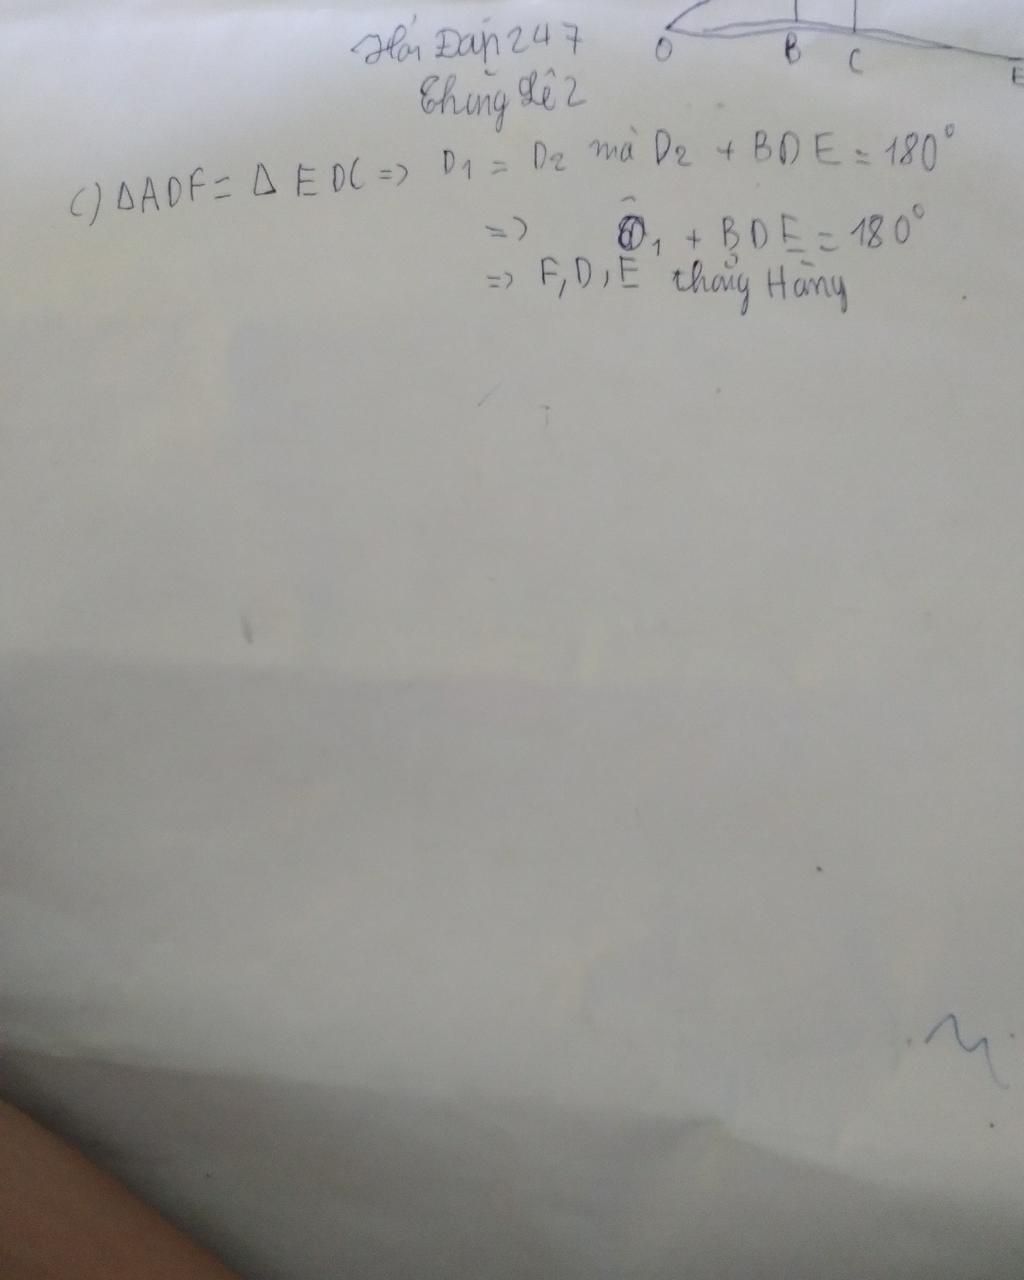 Hỏi Đáp 247
O B C E
c) ΔADF = ΔEDC => D1 = D2 mà D2 + BDE = 180°
=> D̂1 + BDE = 180°
=> F, D, E thẳng Hàng